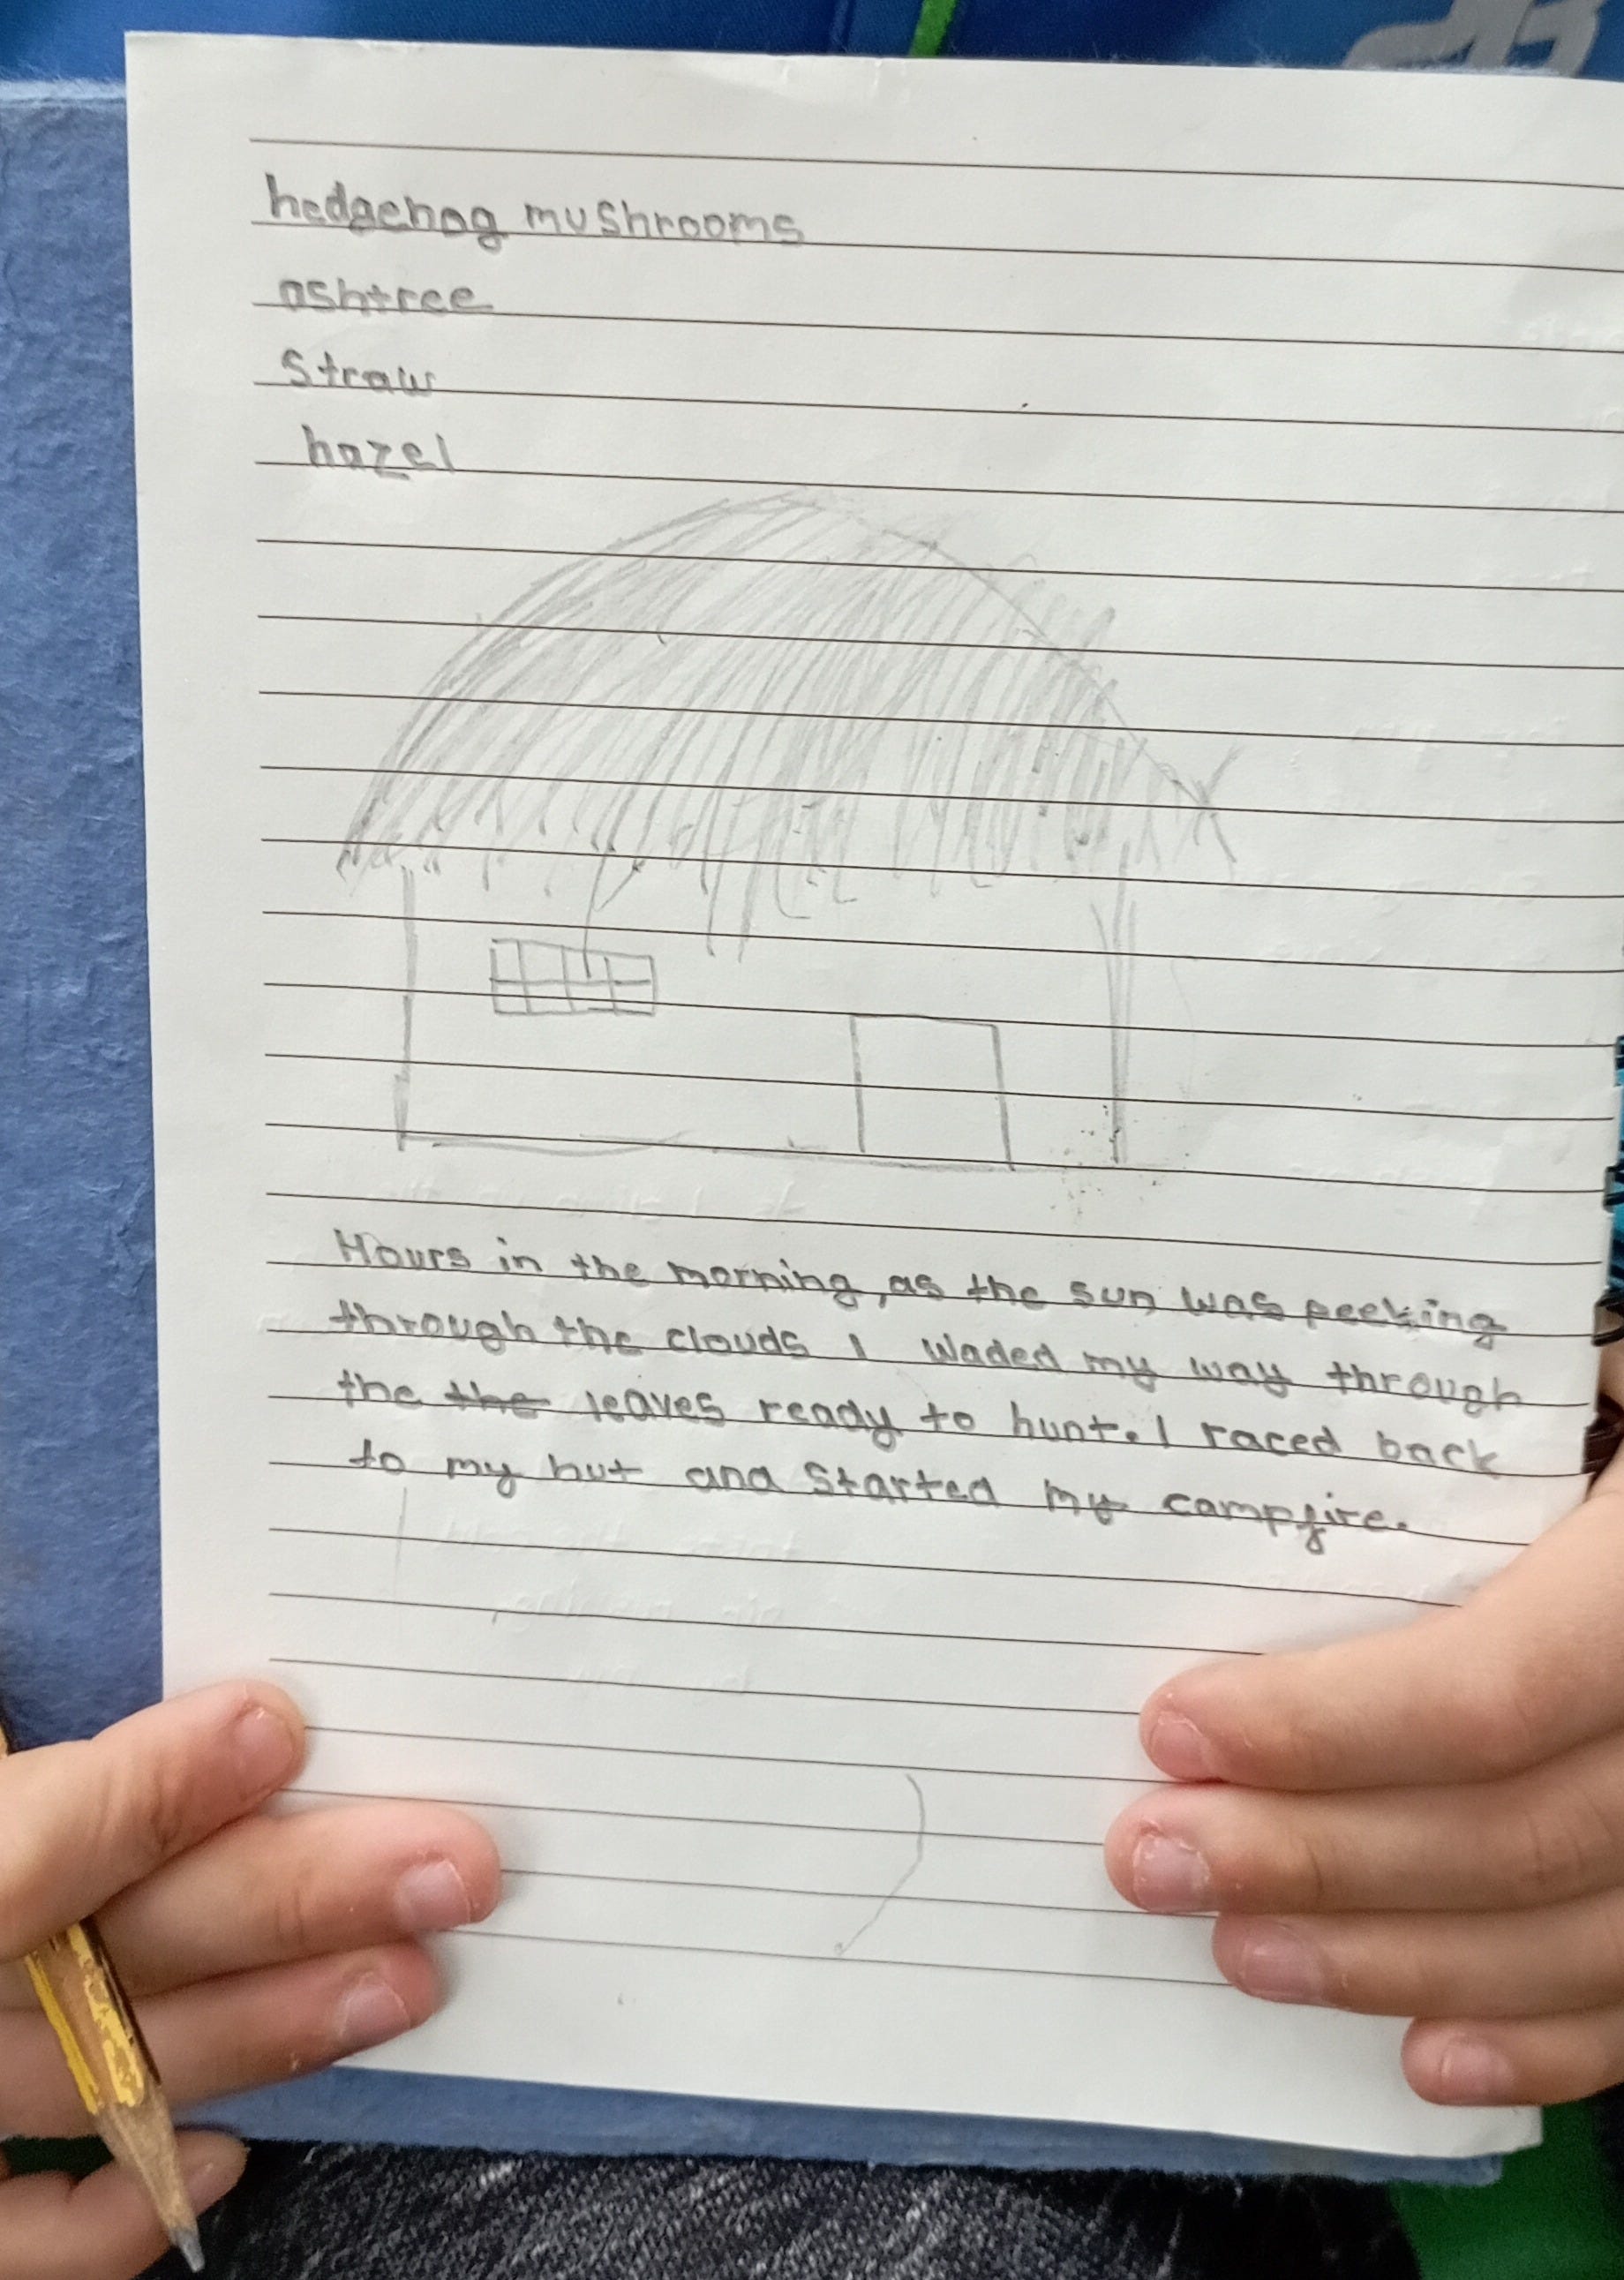 hedgehog mushrooms
ashtree
straw
hazel
Hours in the morning, as the sun was peeking
through the clouds I waded my way through
the the leaves ready to hunt. I raced back
to my hut and started my campfire.